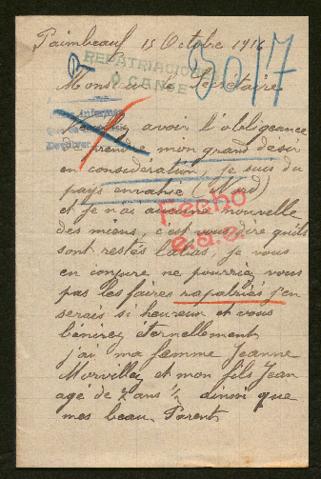 Paimbeauf 15 Octobre 1916
REPATRIACION
O CANGE
3017
Monsieur le Secrétaire
avoir l'obligeance
de prendre mon grand désir
en considération, Je suis du
pays envahie (Nord)
et je n'ai aucune nouvelle
des miens, c'est vous dire qu'ils
Fecho
e.a.c.
sont restés labas, je vous
en conjure ne pourriez vous
pas les faires rapatriés j'en
serais si heureux et vous
bénirez éternellement
j'ai ma femme Jeanne
Morvillez et mon fils Jean
agé de 2 ans 1/2 ainsi que
mes beau Parents